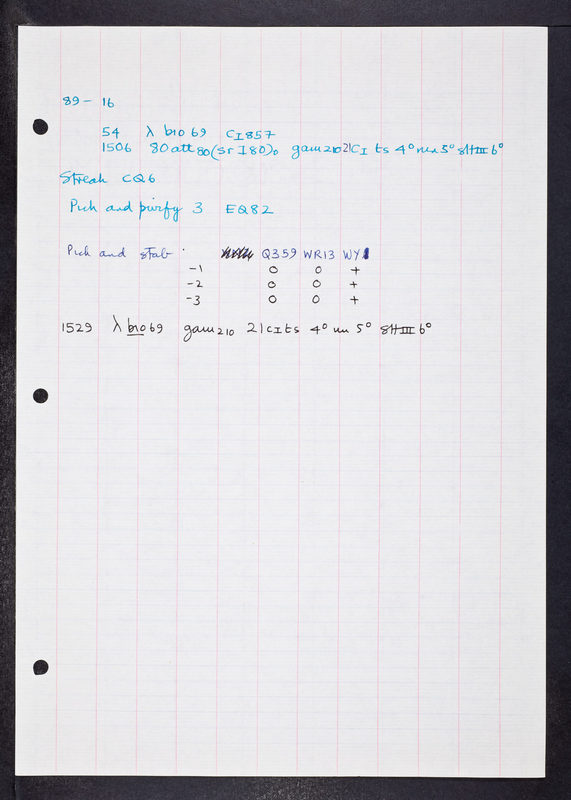 89 - 16
54 λ bio 69 cI857
1506 80att80(srI80)0 gam210 21cI ts 4° nin 5° sHIII 6°
Streak CQ6
Pick and purify 3 EQ82
Pick and stab Q359 WR13 WY1
-1 0 0 +
-2 0 0 +
-3 0 0 +
1529 λ bio69 gam210 21cIts 4° nin 5° sHIII 6°